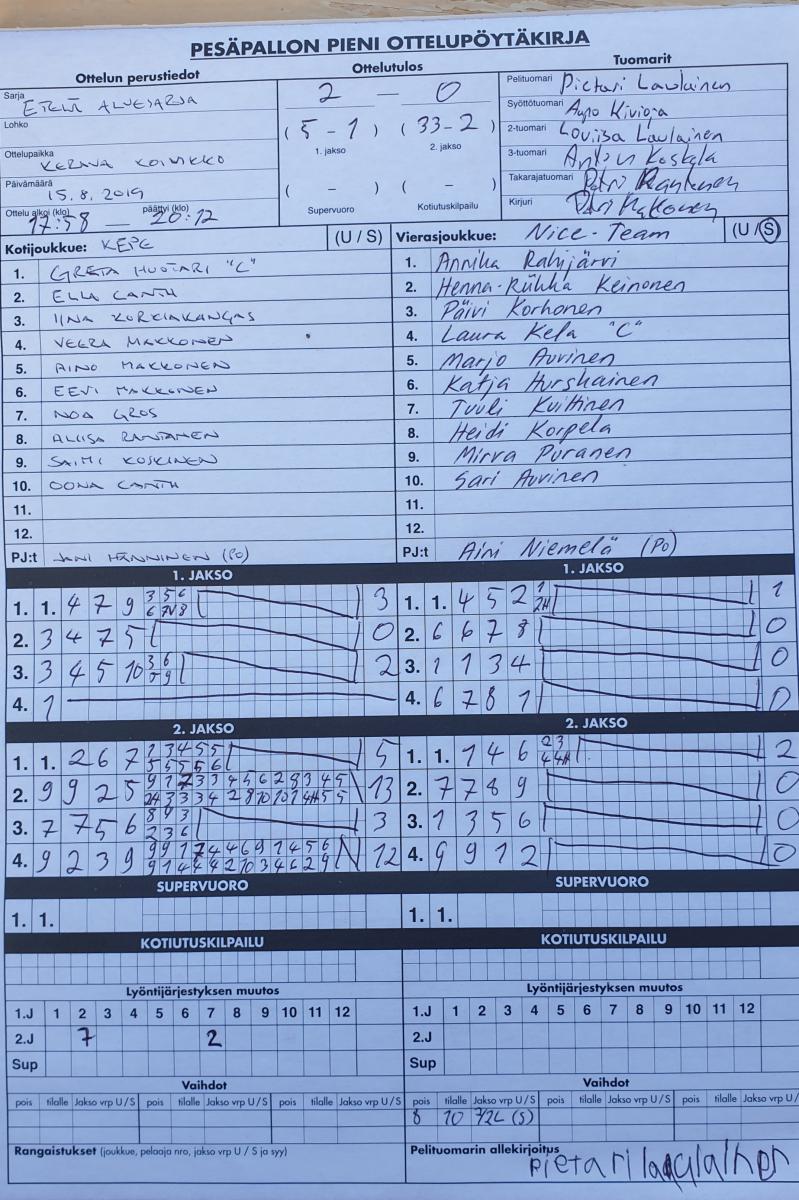 PESÄPALLON PIENI OTTELUPÖYTÄKIRJA
Ottelun perustiedot
Sarja
ETELÄ ALUESARJA
Lohko
Ottelupaikka
KERAVA KOIVIKKO
Päivämäärä
15.8.2019
Ottelu alkoi (klo) päättyi (klo)
17:58 — 20:12
Ottelutulos
2 — 0
(5-1) (33-2)
1. jakso 2. jakso
( - ) ( - )
Supervuoro Kotiutuskilpailu
Tuomarit
Pelituomari Pietari Laulainen
Syöttötuomari Aapo Kivioja
2-tuomari Loviisa Laulainen
3-tuomari Anton Koskela
Takarajatuomari Petri
Kirjuri
Kotijoukkue: KEPE (U / S)
1. GRETA HUOTARI "C"
2. ELLA CANTH
3. IINA KORKIAKANGAS
4. VEERA MAKKONEN
5. AINO MAKKONEN
6. EEVI MAKKONEN
7. NOA GROS
8. ALIISA RANTANEN
9. SAIMI KOSKINEN
10. OONA CANTH
11.
12.
PJ:t JANI HÄNNINEN (PO)
Vierasjoukkue: Nice-Team (U / S)
1. Annika Rahijärvi
2. Henna-Riikka Keinonen
3. Päivi Korhonen
4. Laura Kela "C"
5. Marjo Auvinen
6. Katja Hurskainen
7. Tuuli Kuittinen
8. Heidi Korpela
9. Mirva Puranen
10. Sari Auvinen
11.
12.
PJ:t Aini Niemelä (Po)
1. JAKSO
1. 1. 4 7 9 3 5 6 3
6 7V 8
2. 3 4 7 5 0
3. 3 4 5 10 3 6 2
5 9
4. 1
1. JAKSO
1. 1. 4 5 2 1 1
2H
2. 6 6 7 8 0
3. 1 1 3 4 0
4. 6 7 8 1 0
2. JAKSO
1. 1. 2 6 7 2 3 4 5 5 5
5 5 5 5 6
2. 9 9 2 5 13
3. 7 7 5 6 3
2 3 6
4. 9 2 3 9 12
2. JAKSO
1. 1. 1 4 6 2 3 2
4 4H
2. 7 7 8 9 0
3. 1 3 5 6 0
4. 9 9 1 2 0
SUPERVUORO
1. 1.
SUPERVUORO
1. 1.
KOTIUTUSKILPAILU
KOTIUTUSKILPAILU
Lyöntijärjestyksen muutos
1.J 1 2 3 4 5 6 7 8 9 10 11 12
2.J 7 2
Sup
Lyöntijärjestyksen muutos
1.J 1 2 3 4 5 6 7 8 9 10 11 12
2.J
Sup
Vaihdot
pois tilalle Jakso vrp U / S pois tilalle Jakso vrp U / S pois tilalle Jakso vrp U / S
Vaihdot
pois tilalle Jakso vrp U / S pois tilalle Jakso vrp U / S pois tilalle Jakso vrp U / S
8 10 (S)
Rangaistukset (joukkue, pelaaja nro, jakso vrp U / S ja syy)
Pelituomarin allekirjoitus
pietari laulainen